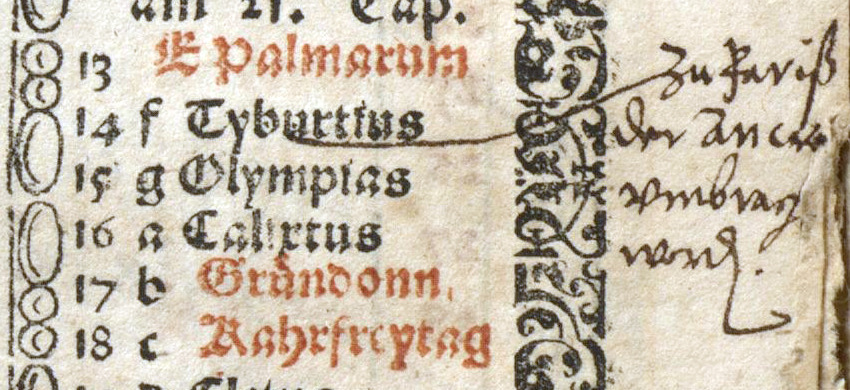 am 21. Cap.
13 E Palmarum
14 f Tyburtius
15 g Olympias
16 a Calixtus
17 b Gründonn.
18 c Kahrfreytag
Zu Pariß
der Ancre
vmbracht
word.